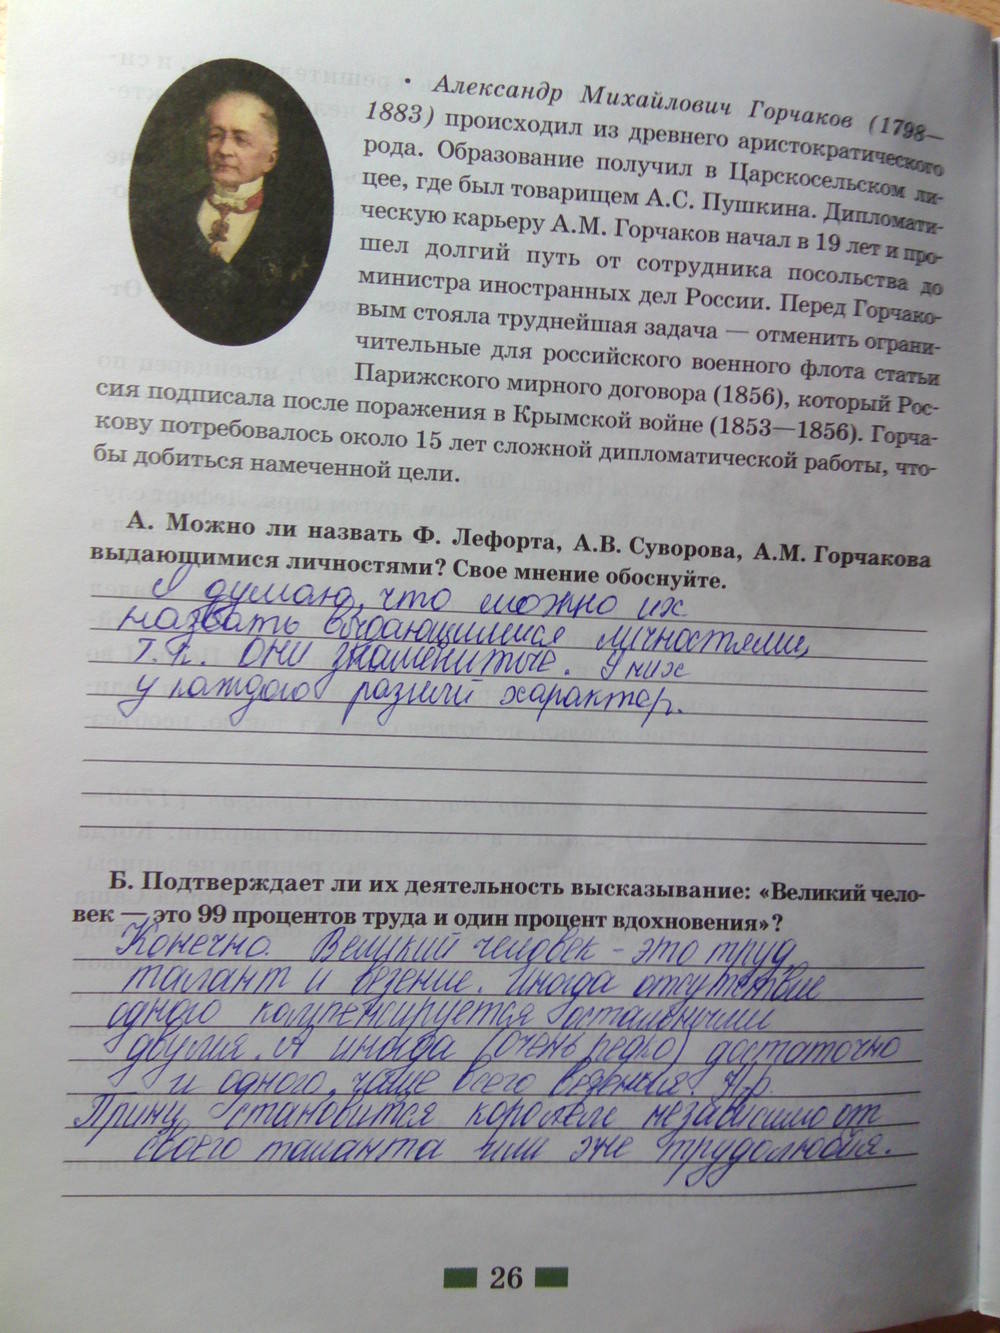 • Александр Михайлович Горчаков (1798—
1883) происходил из древнего аристократического
рода. Образование получил в Царскосельском ли-
цее, где был товарищем А.С. Пушкина. Дипломати-
ческую карьеру А.М. Горчаков начал в 19 лет и про-
шел долгий путь от сотрудника посольства до
министра иностранных дел России. Перед Горчако-
вым стояла труднейшая задача — отменить ограни-
чительные для российского военного флота статьи
Парижского мирного договора (1856), который Рос-
сия подписала после поражения в Крымской войне (1853—1856). Горча-
кову потребовалось около 15 лет сложной дипломатической работы, что-
бы добиться намеченной цели.
А. Можно ли назвать Ф. Лефорта, А.В. Суворова, А.М. Горчакова
выдающимися личностями? Свое мнение обоснуйте.
Я думаю, что можно их
назвать выдающимися личностями,
т.к. они знаменитые. У них
у каждого разный характер.
Б. Подтверждает ли их деятельность высказывание: «Великий чело-
век — это 99 процентов труда и один процент вдохновения»?
Конечно. Великий человек - это труд,
талант и везение. Иногда отсутствие
одного компенсируется остальными
двумя. А иногда (очень редко) достаточно
и одного, чаще всего везенья. Н-р.
Принц становится королем независимо от
своего таланта или же трудолюбия.
26